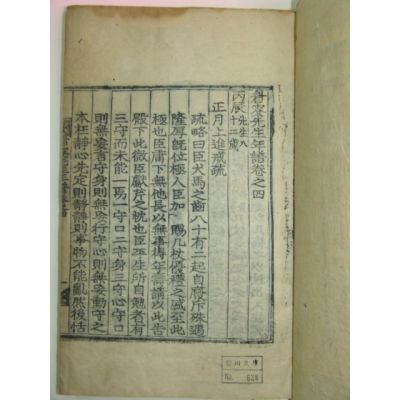 眉叟先生年譜卷之四
丙辰先生八十二歲
正月上進戒疏
疏略曰臣犬馬之齒八十有二起自廢斥殊遇
隆厚旣位極人臣加 賜几杖優禮之盛至此
極也臣庸下無他長以無事得年請以此告
殿下此微臣獻芹之忱也臣平生所自勉者有
三守而未能一焉一守口二守身三守心守口
則無妄言守身則無妄行守心則無妄動守之
本在靜心先定則靜靜則事物不能亂然後恬
川文庫
No. 628